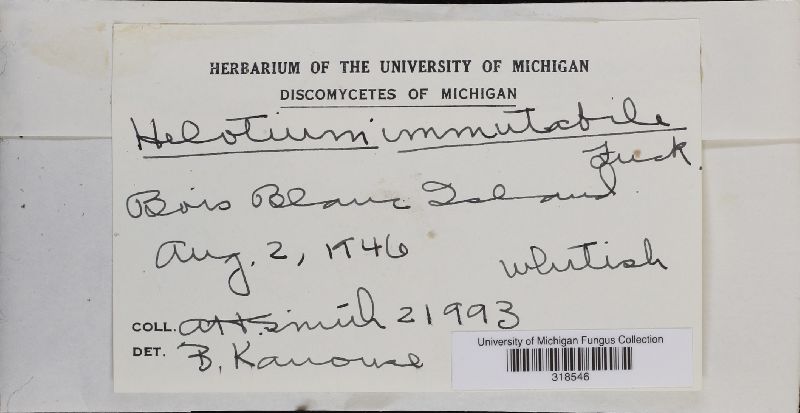 HERBARIUM OF THE UNIVERSITY OF MICHIGAN
DISCOMYCETES OF MICHIGAN
Helotium immutabile
Fuck.
Bois Blanc Island
Aug. 2, 1946
Whitish
COLL. A.H. Smith 21993
DET. B. Kanouse
University of Michigan Fungus Collection
318546